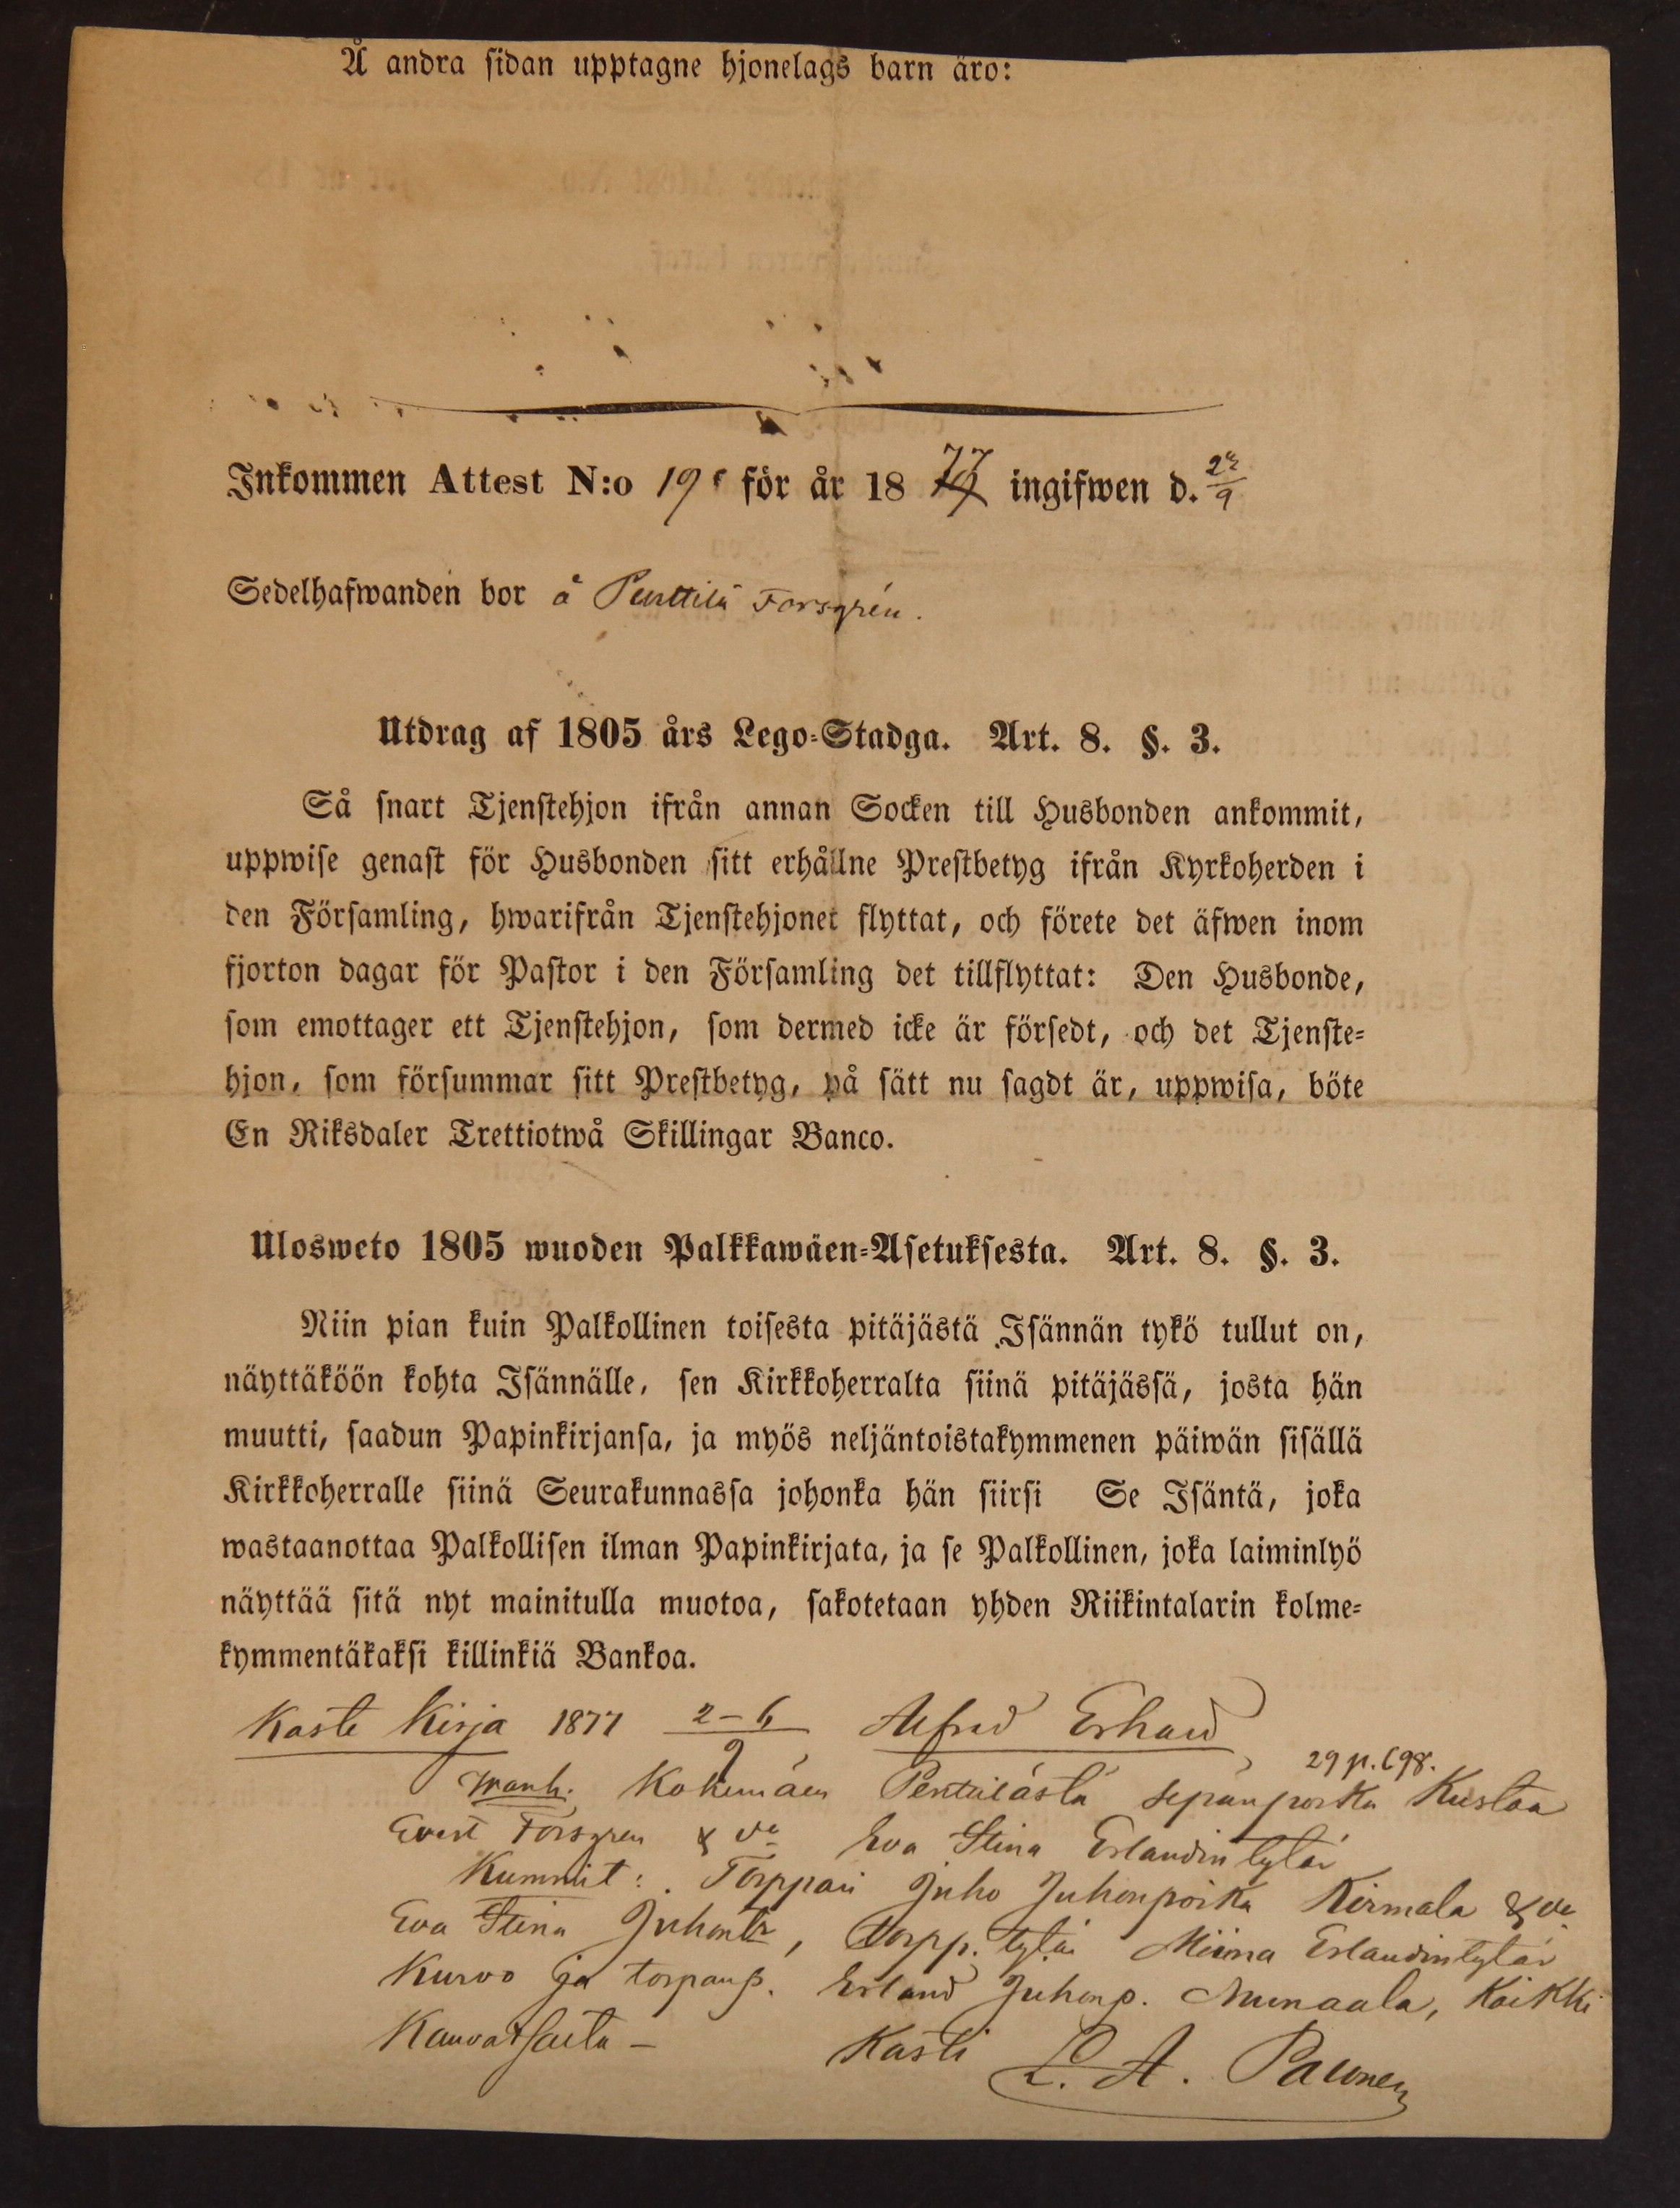 Å andra sidan upptagne hjonelags barn äro:
Inkommen Attest N:o 19 för år 1877 ingifwen d.
Sedelhafwanden bor å Perttilä Forsgrén.
Utdrag af 1805 års Lego-Stadga. Art. 8. §. 3.
Så snart Tjenstehjon ifrån annan Socken till Husbonden ankommit,
uppwise genast för Husbonden sitt erhållne Prestbetyg ifrån Kyrkoherden i
den Församling, hwarifrån Tjenstehjonet flyttat, och förete det äfwen inom
fjorton dagar för Pastor i den Församling det tillflyttat: Den Husbonde,
som emottager ett Tjenstehjon, som dermed icke är försedt, och det Tjenste-
hjon, som försummar sitt Prestbetyg, på sätt nu sagdt är, uppwisa, böte
En Riksdaler Trettiotwå Skillingar Banco.
Ulosweto 1805 wuoden Palkkawäen-Asetuksesta. Art. 8. §. 3.
Niin pian kuin Palkollinen toisesta pitäjästä Isännän tykö tullut on,
näyttäköön kohta Isännälle, sen Kirkkoherralta siinä pitäjässä, josta hän
muutti, saadun Papinkirjansa, ja myös neljäntoistakymmenen päiwän sisällä
Kirkkoherralle siinä Seurakunnassa johonka hän siirsi Se Isäntä, joka
wastaanottaa Palkollisen ilman Papinkirjata, ja se Palkollinen, joka laiminlyö
näyttää sitä nyt mainitulla muotoa, sakotetaan yhden Riikintalarin kolme-
kymmentäkaksi killinkiä Bankoa.
Kaste Kirja 1877 2-6 9 Alfred Erhard
29 p. 698.
wanh. Kokemäen Perttilästä sepän poika Kustaa
Evert Forsgren & va Eva Stina Erlandin tytär
Kummit: Torppari Juho Juhonpoika Kirmala & va
Eva Stina Juhontr, torpp. tytär Miina Erlandintytär
Kurvo ja torpanp. Erland Juhonp. Munaala, Kaikki
Kauvatsalta – Kasti L. A. Paunen